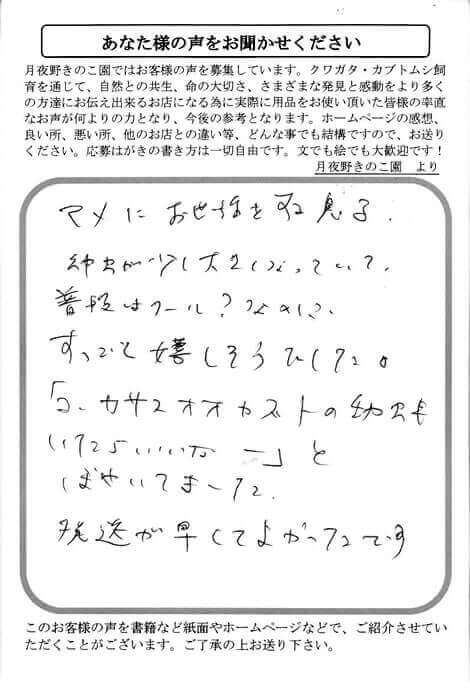 あなた様の声をお聞かせください
月夜野きのこ園ではお客様の声を募集しています。クワガタ・カブトムシ飼
育を通じて、自然との共生、命の大切さ、さまざまな発見と感動をより多く
の方達にお伝え出来るお店になる為に実際に用品をお使い頂いた皆様の率直
なお声が何よりの力となり、今後の参考となります。ホームページの感想、
良い所、悪い所、他のお店との違い等、どんな事でも結構ですので、お送り
ください。応募はがきの書き方は一切自由です。文でも絵でも大歓迎です！
月夜野きのこ園　より
マメに お世話をする 息子.
幼虫が少し大きくなっていて、
普段はクール？なのに、
すっごく嬉しそうでした。
「コーカサスオオカブトの幼虫も
いたらいいなー」と
ぼやいてました.
発送が早くてよかったです
このお客様の声を書籍など紙面やホームページなどで、ご紹介させてい
ただくことがございます。ご了承の上お送り下さい。